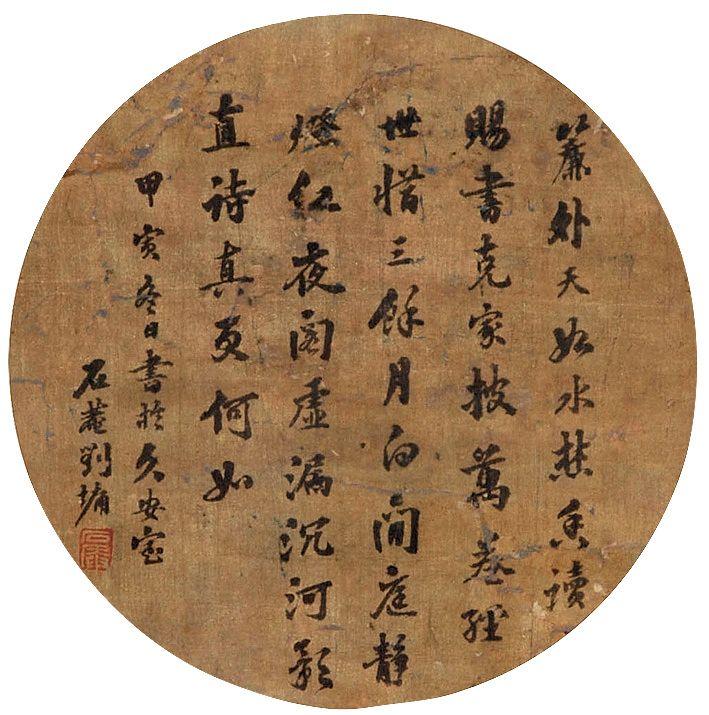 簾外天如水焚香讀
賜書克家披萬卷經
世惜三餘月白閒庭靜
燈紅夜閣虛漏沉河影
直詩真更何如
甲寅冬日書於久安室
石菴劉墉